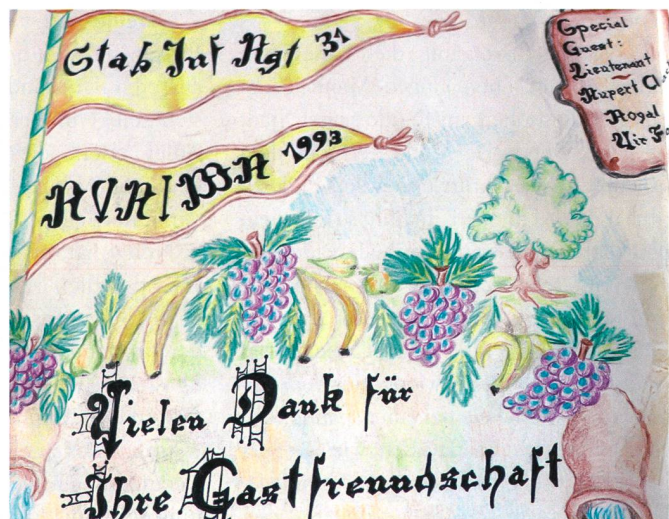 Stab Inf Rgt 31
KVK/WK 1993
Special
Guest:
Lieutenant
Rupert
Royal
Air
Vielen Dank für
Ihre Gastfreundschaft